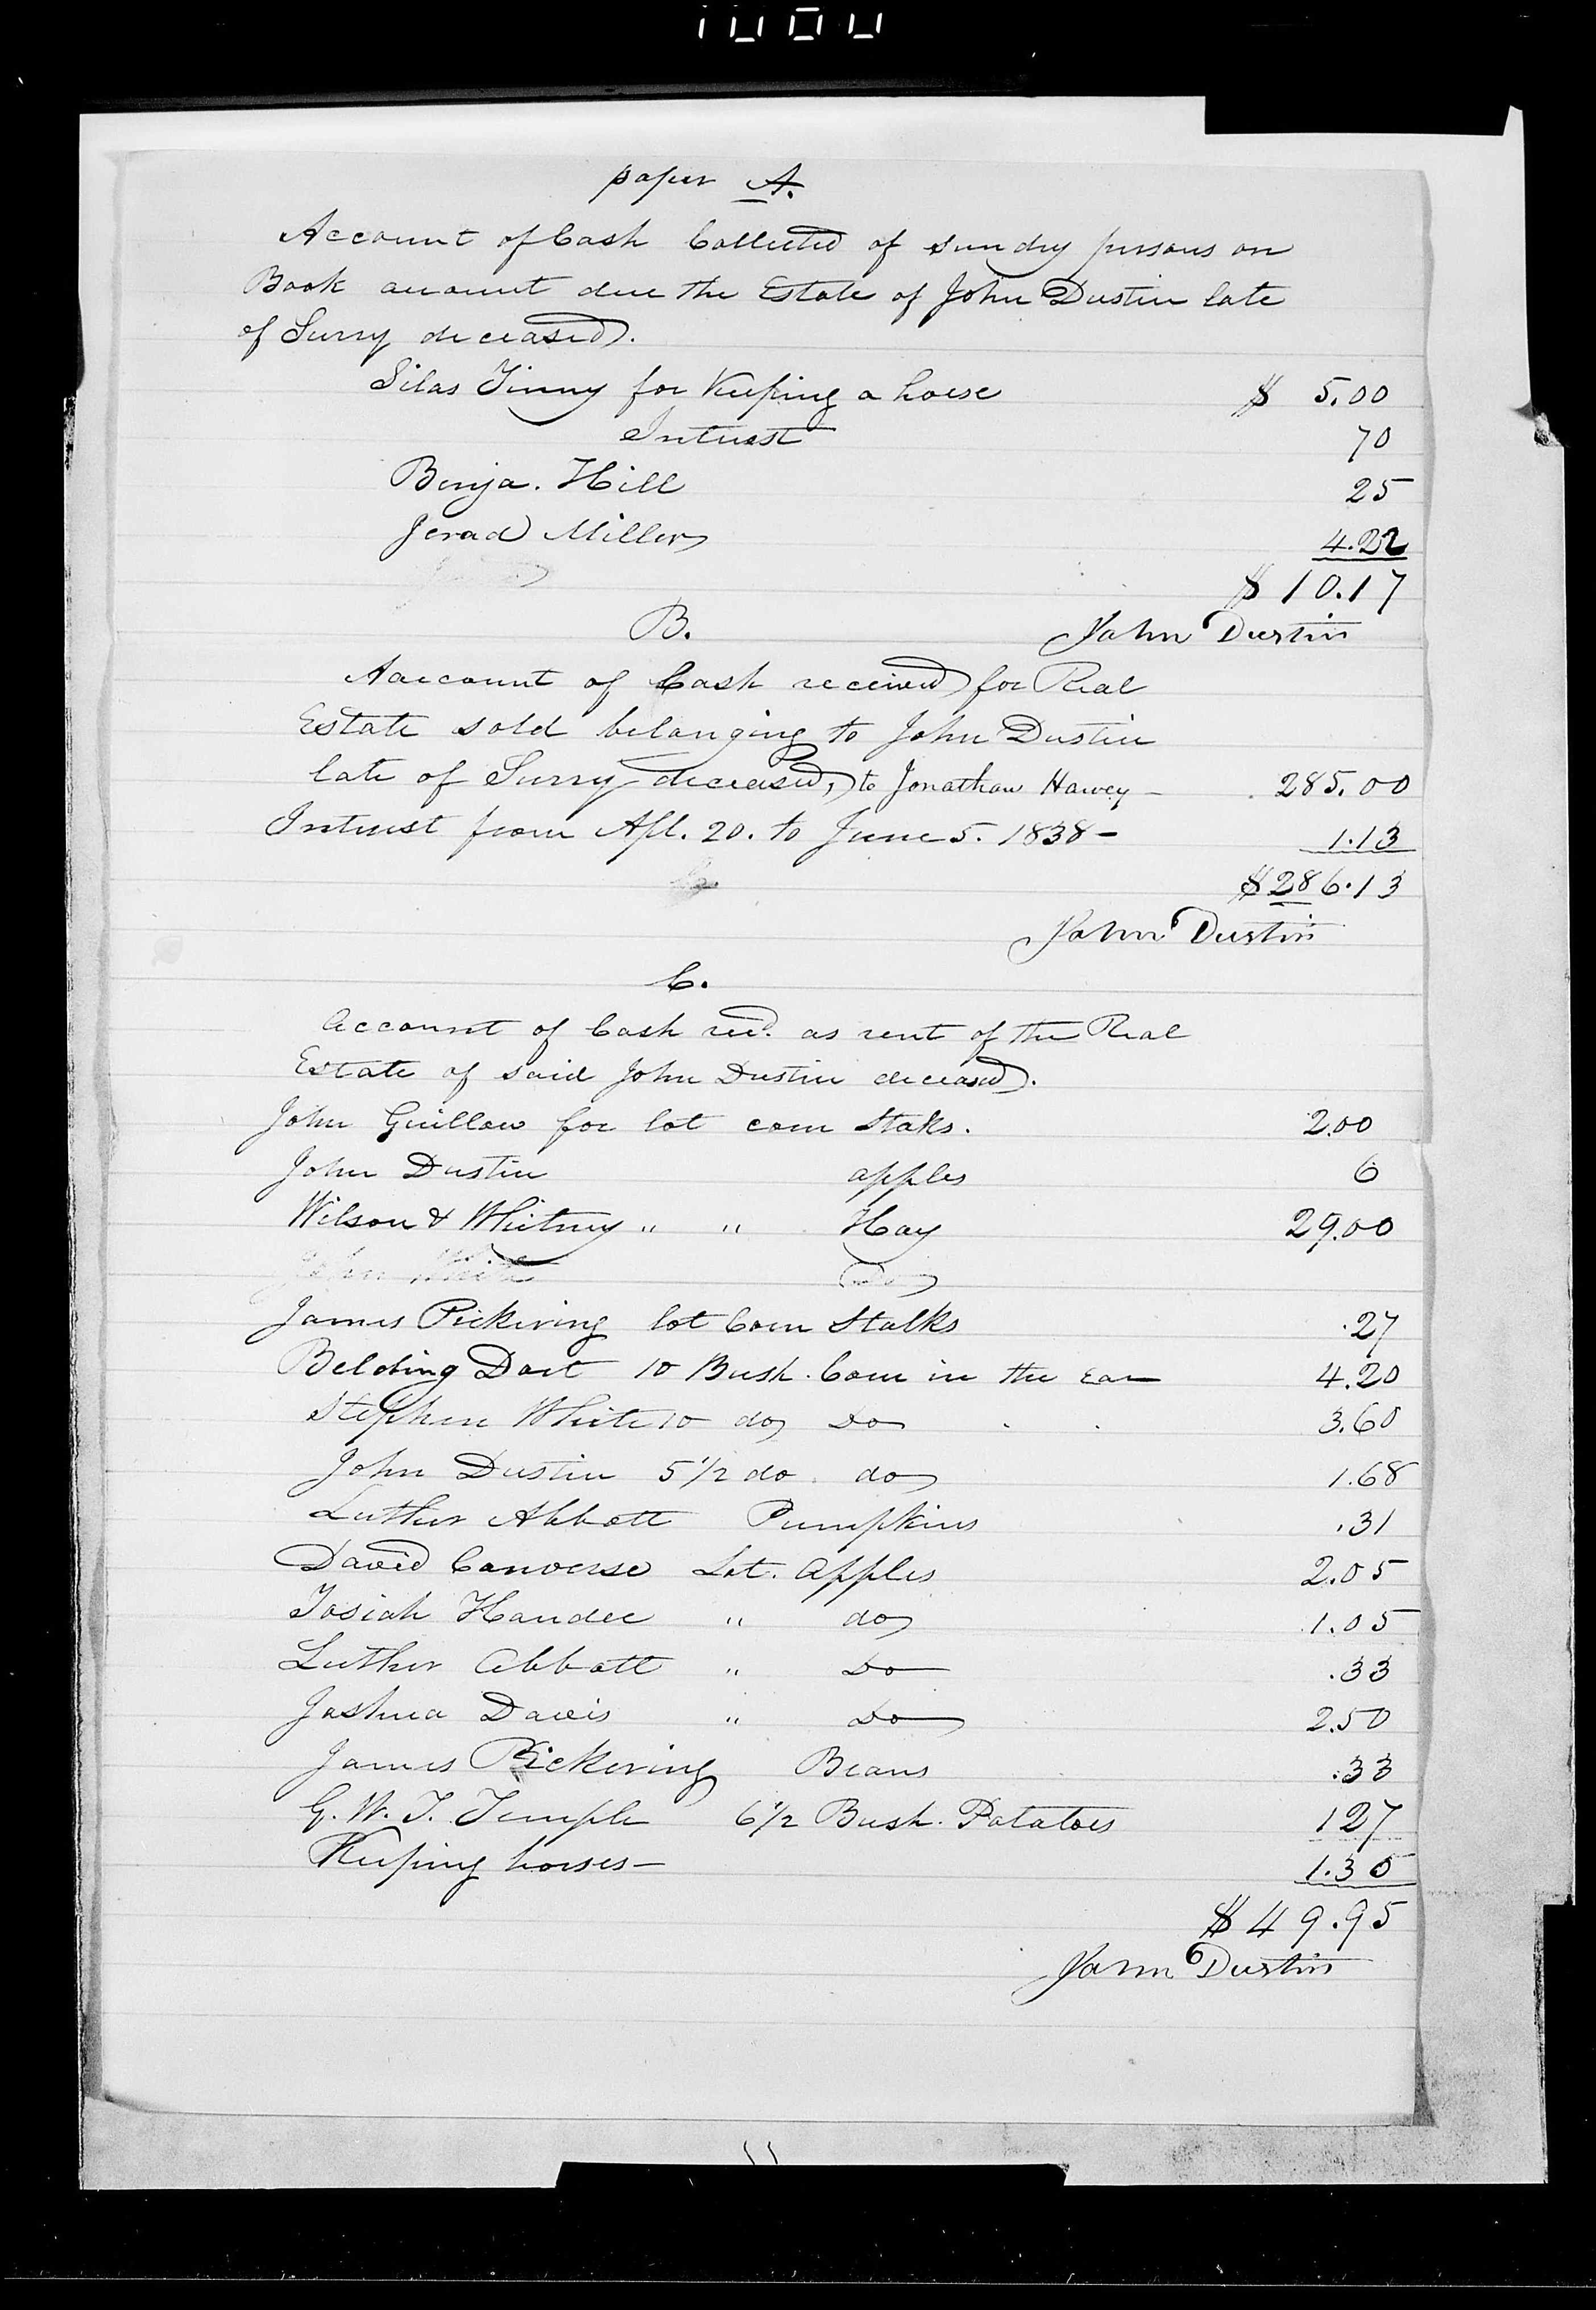 paper A.
Account of Cash Collected of sundry persons on
Book account due the Estate of John Dustin late
of Surry deceased.
Silas Tinny for Keeping a horse $ 5.00
Interest 70
Benja. Hill 25
Jerad Miller 4.22
$ 10.17
B. John Dustin
Aaccount of Cash received for Real
Estate sold belonging to John Dustin
late of Surry deceased, to Jonathan Harvey - 285.00
Interest from Apl. 20. to June 5. 1838 - 1.13
$286.13
John Dustin
C.
Account of Cash recd. as rent of the Real
Estate of said John Dustin deceased.
John Guillow for lot corn Staks. 2.00
John Dustin apples 6
Wilson & Whitney " " Hay 29.00
John White Do
James Pickering lot Corn Stalks .27
Belding Dart 10 Bush. Corn in the Ear 4.20
Stephen White 10 do Do 3.60
John Dustin 5 1/2 do. do 1.68
Luther Abbott Pumpkins .31
David Converse Lot. Apples 2.05
Josiah Handee " do 1.05
Luther Abbott " Do .33
Joshua Davis " Do 2.50
James Pickering Beans .33
G. W. T. Temple 6 1/2 Bush. Potatoes 1 27
Keeping horses - 1.30
$ 49.95
John Dustin